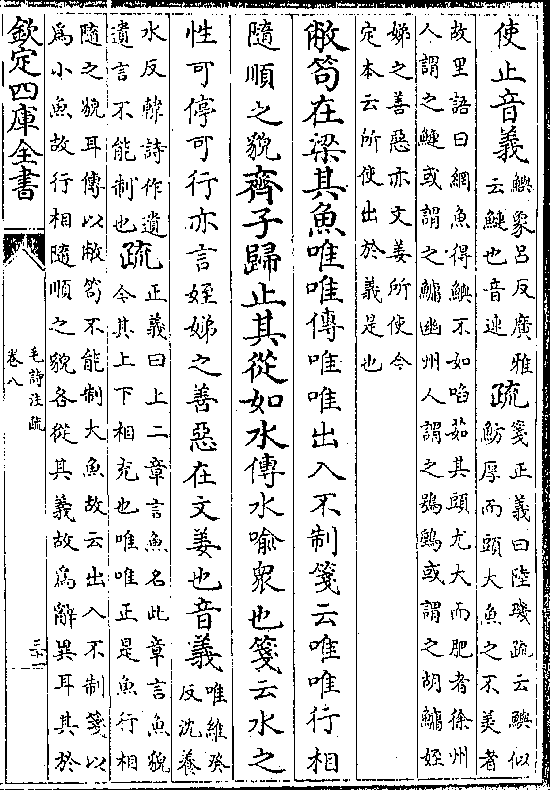 使止音義鱮象呂反廣雅云鰱也音連疏箋正義曰陸璣疏云鱮似魴厚而頭大魚之不美者
故里語曰網魚得鱮不如啗茹其頭尤大而肥者徐州
人謂之鰱或謂之鱅幽州人謂之鴞鷉或謂之胡鱅姪
娣之善惡亦文姜所使今
定本云所使出於義是也
敝笱在梁其魚唯唯傳唯唯出入不制箋云唯唯行相
隨順之貌齊子歸止其從如水傳水喻衆也箋云水之
性可停可行亦言姪娣之善惡在文姜也音義唯維癸反沈養
水反韓詩作遺遺言不能制也疏正義曰上二章言魚名此章言魚貌令其上下相充也唯唯正是魚行相
隨之貌耳傳以敝笱不能制大魚故云出入不制箋以
為小魚故行相隨順之貌各從其義故為辭異耳其於
欽定四庫全書
毛詩注疏
卷八